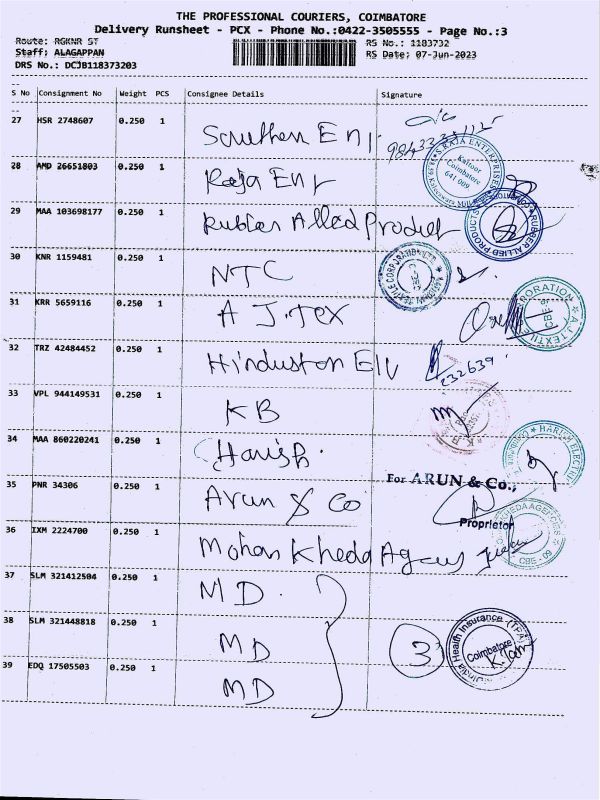 THE PROFESSIONAL COURIERS, COIMBATORE
Delivery Runsheet - PCX - Phone No.:0422-3505555 - Page No.:3
Route: RGKNR ST RS No.: 1183732
Staff: ALAGAPPAN RS Date: 07-Jun-2023
DRS No.: DCJB118373203
S No Consignment No Weight PCS Consignee Details Signature
27 HSR 2748607 0.250 1 Southern Eng.
28 AMD 26651803 0.250 1 Raja Eng
S. RAJA ENTERPRISES
Kattoor
Coimbatore
641 009
29 MAA 103698177 0.250 1 Rubber Allied Product
RUBBER ALLIED PRODUCTS
30 KNR 1159481 0.250 1 NTC
31 KRR 5659116 0.250 1 A J. Tex
A.J. TEXTILE
32 TRZ 42484452 0.250 1 Hinduston
232639
33 VPL 944149531 0.250 1 KB
34 MAA 860220241 0.250 1 Harish.
HARISH ELECTRI
35 PNR 34306 0.250 1 Arun & Co
For ARUN & Co.,
Proprietor
36 IXM 2224700 0.250 1 Mohan Kheda
KHEDA AGENCIES
CBE - 09
37 SLM 321412504 0.250 1 MD.
38 SLM 321448818 0.250 1 MD
3
India Health Insurance (TPA)
Coimbatore
39 EDQ 17505503 0.250 1 MD